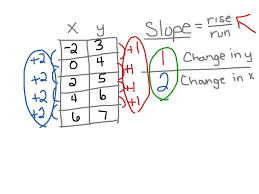 x y
Slope = rise/run
-2 3
0 4
2 5
4 6
6 7
+2
+2
+2
+2
+1
+1
+1
+1
1 Change in y
2 Change in x